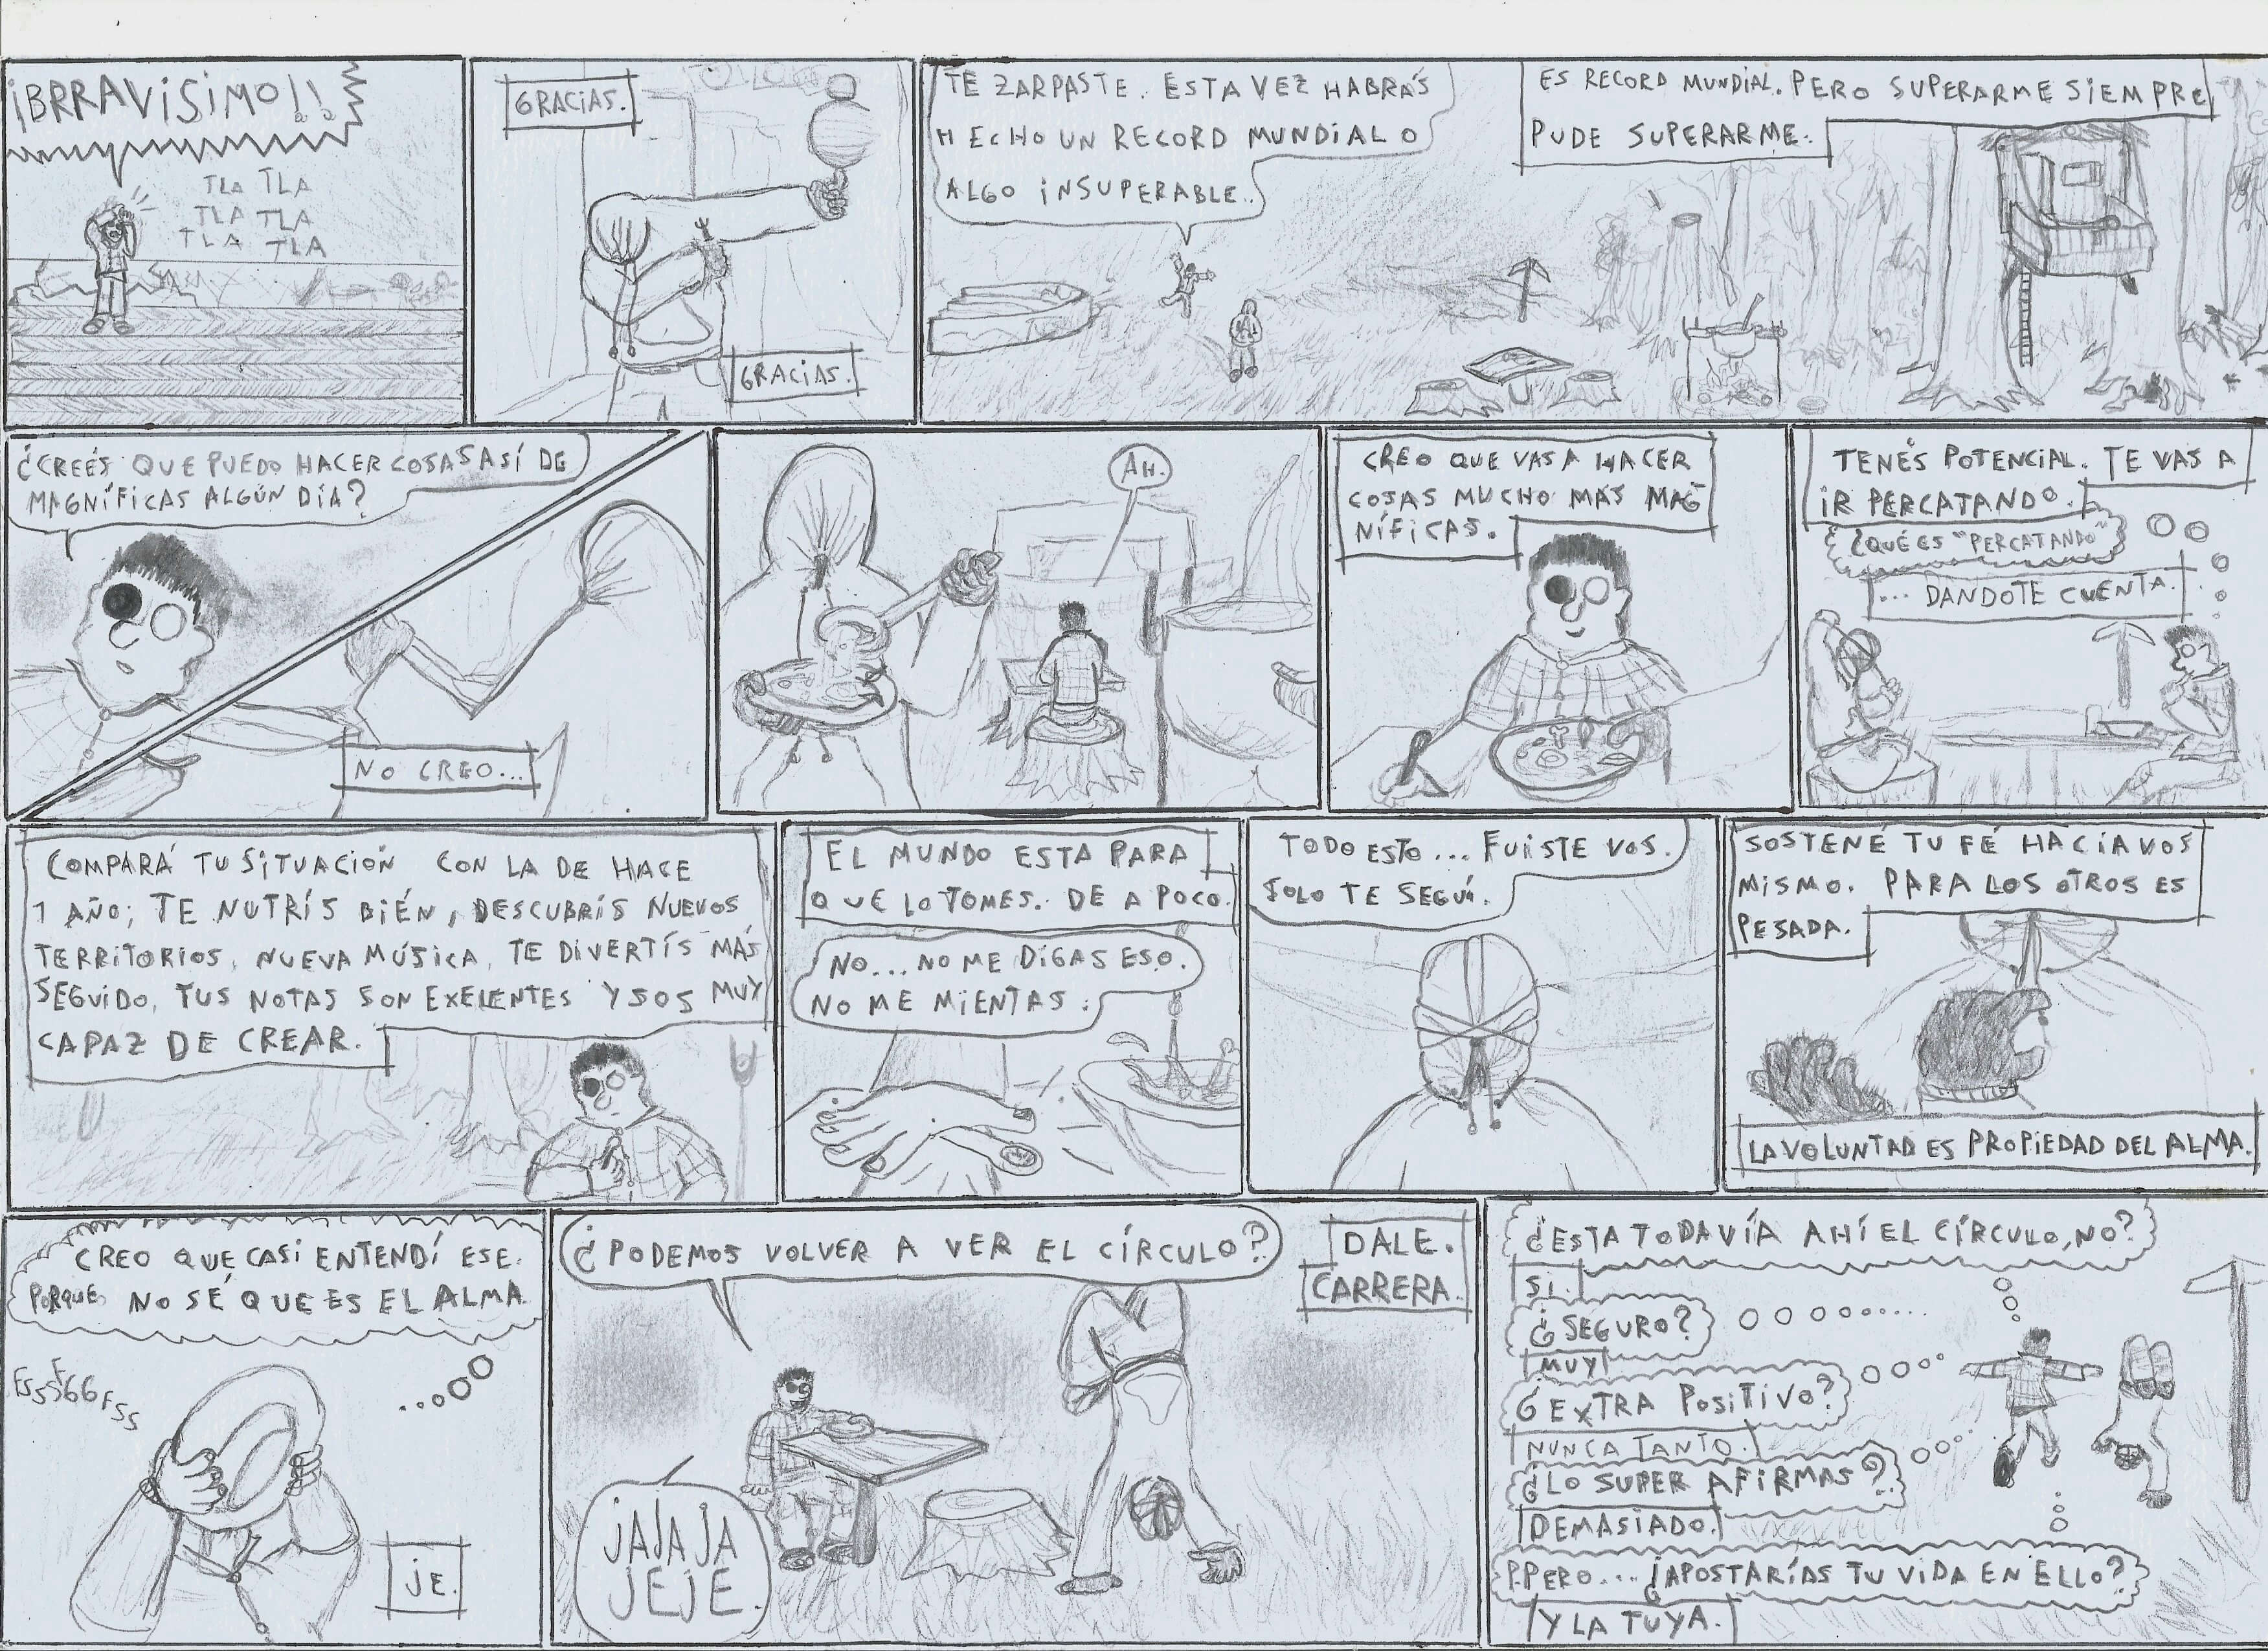 ¡BRRAVISIMO!!
TLA TLA
TLA TLA
TLA TLA
GRACIAS.
GRACIAS.
TE ZARPASTE. ESTA VEZ HABRÁS
HECHO UN RECORD MUNDIAL O
ALGO INSUPERABLE..
ES RECORD MUNDIAL. PERO SUPERARME SIEMPRE
PUDE SUPERARME.
¿CREÉS QUE PUEDO HACER COSAS ASÍ DE
MAGNÍFICAS ALGÚN DÍA?
NO CREO...
AH.
CREO QUE VAS A HACER
COSAS MUCHO MÁS MAG
NÍFICAS.
TENÉS POTENCIAL. TE VAS A
IR PERCATANDO.
¿QUÉ ES "PERCATANDO"
... DANDOTE CUENTA.
COMPARÁ TU SITUACIÓN CON LA DE HACE
1 AÑO; TE NUTRÍS BIÉN, DESCUBRÍS NUEVOS
TERRITORIOS, NUEVA MÚSICA, TE DIVERTÍS MÁS
SEGUIDO, TUS NOTAS SON EXELENTES Y SOS MUY
CAPAZ DE CREAR.
EL MUNDO ESTA PARA
QUE LO TOMES. DE A POCO.
NO... NO ME DIGAS ESO.
NO ME MIENTAS.
TODO ESTO... FUISTE VOS.
SOLO TE SEGUÍ.
SOSTENÉ TU FÉ HACIA VOS
MISMO. PARA LOS OTROS ES
PESADA.
LA VOLUNTAD ES PROPIEDAD DEL ALMA.
CREO QUE CASI ENTENDÍ ESE.
PORQUE NO SÉ QUE ES EL ALMA
JE.
¿PODEMOS VOLVER A VER EL CÍRCULO?
DALE.
CARRERA.
JAJAJA
JEJE.
¿ESTA TODAVÍA AHÍ EL CÍRCULO, NO?
SI.
¿SEGURO?
MUY
¿EXTRA POSITIVO?
NUNCA TANTO.
¿LO SUPER AFIRMAS?
DEMASIADO.
P.PERO... ¿APOSTARÍAS TU VIDA EN ELLO?
Y LA TUYA.